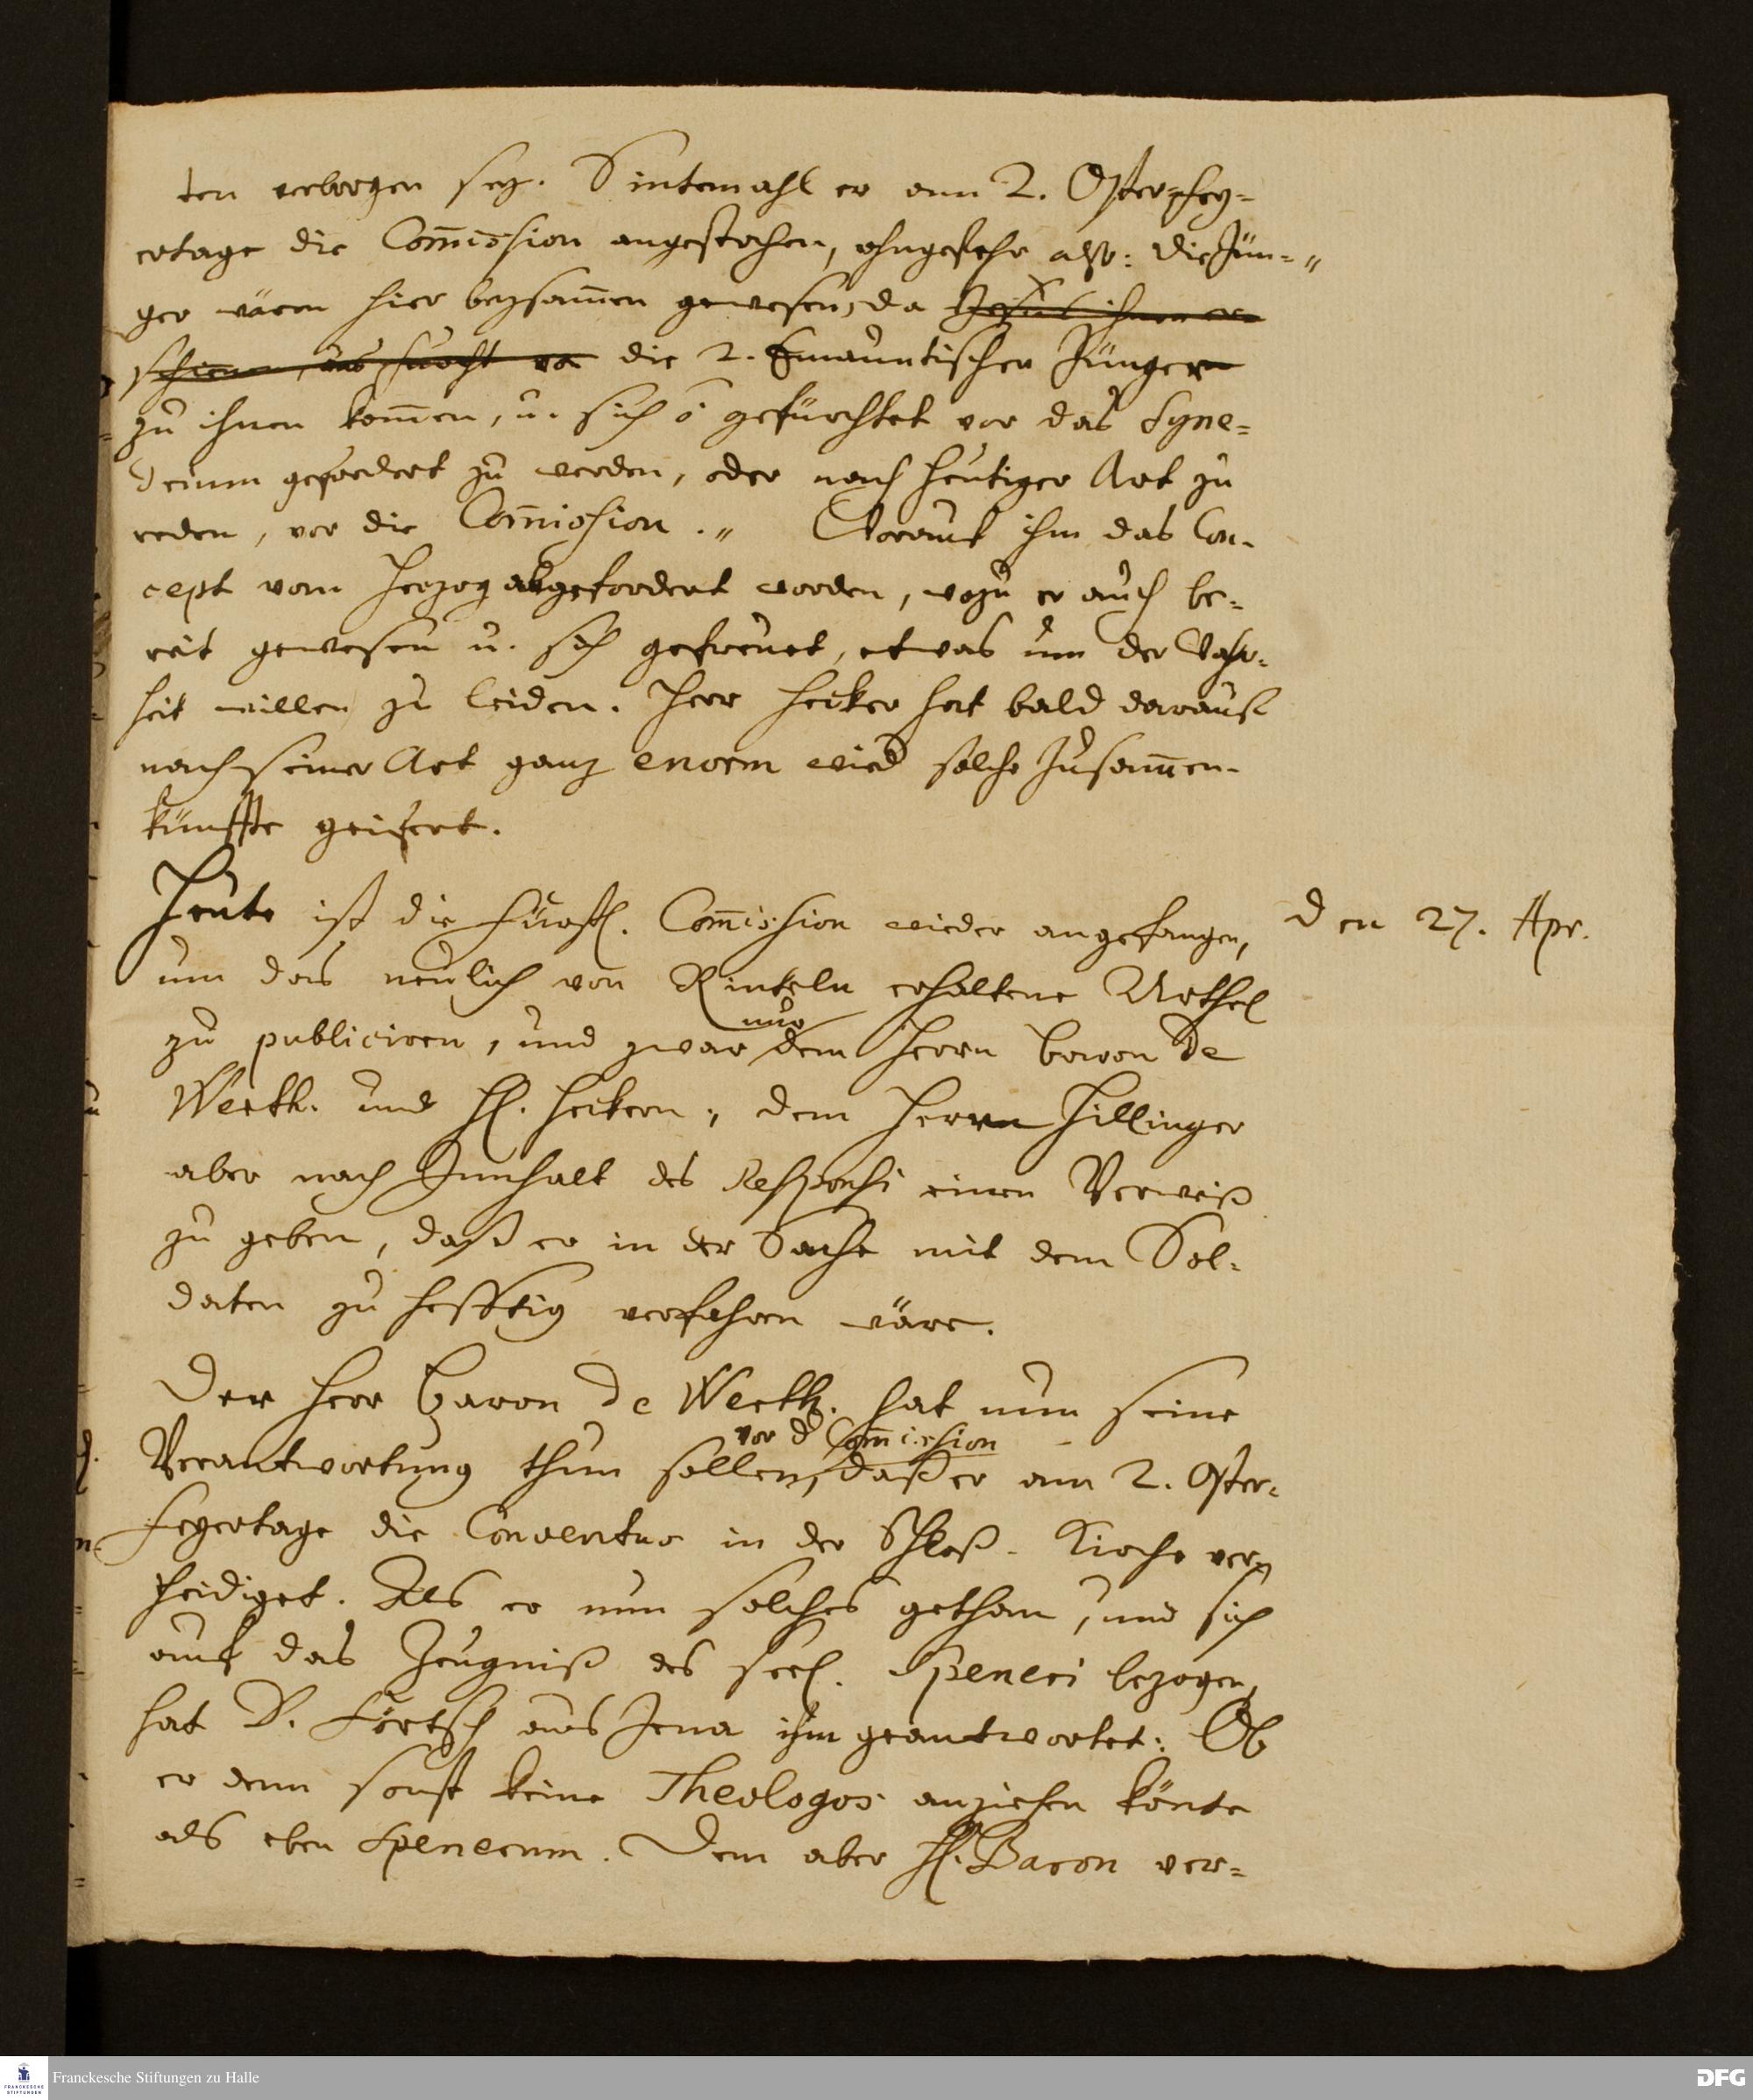 ten verborgen sey. Sintemahl er am 2. Osterfey-
ertage die Com̅ission angestochen, ohngefehr also: die Jün-"
ger wären hier beysam̅en gewesen, da Jesus ihnen er-
schienen, aus furcht vor die 2. Emauntischen Jünger
zu ihnen kom̅en, u. sich ō gefürchtet vor das Syne-
drium gefordert zu werden, oder nach heutiger Art zu
reden, vor die Com̅ission." Worauf ihm das Con-
cept vom Herzog abgefordert worden, wozu er auch be-
reit gewesen u. sich gefreuet, etwas um der Wahr-
heit willen zu leiden. Herr Hecker hat bald darauf
nach seiner Art ganz enorm wied solche Zusam̅en-
künffte geifert.
Heute ist die Fürstl. Com̅ission wieder angefangen,
den 27. Apr.
um das neulich von Rinteln erhaltene Urthel
zu publiciren, und zwar nur dem Herrn Baron de
Werth. und H. Heckern, dem Herrn Hillinger
aber nach Innhalt des Responsi einen Verweiß
zu geben, daß er in der Sache mit dem Sol-
daten zu hefftig verfahren wäre.
Der Herr Baron de Werth. hat nun seine
Verantwortung thun sollen vor d Com̅ission, daß er am 2. Oster-
feyertage die Conventus in der Schloß-Kirche ver-
theidiget. Als er nun solches gethan, und sich
auf das Zeugniß des seel. Speneri bezogen,
hat D. Förtsch aus Jena ihm geantwortet: Ob
er denn sonst keine Theologos anziehen könte
als eben Spenerum. Dem aber H. Baron ver-
Franckesche Stiftungen zu Halle
DFG